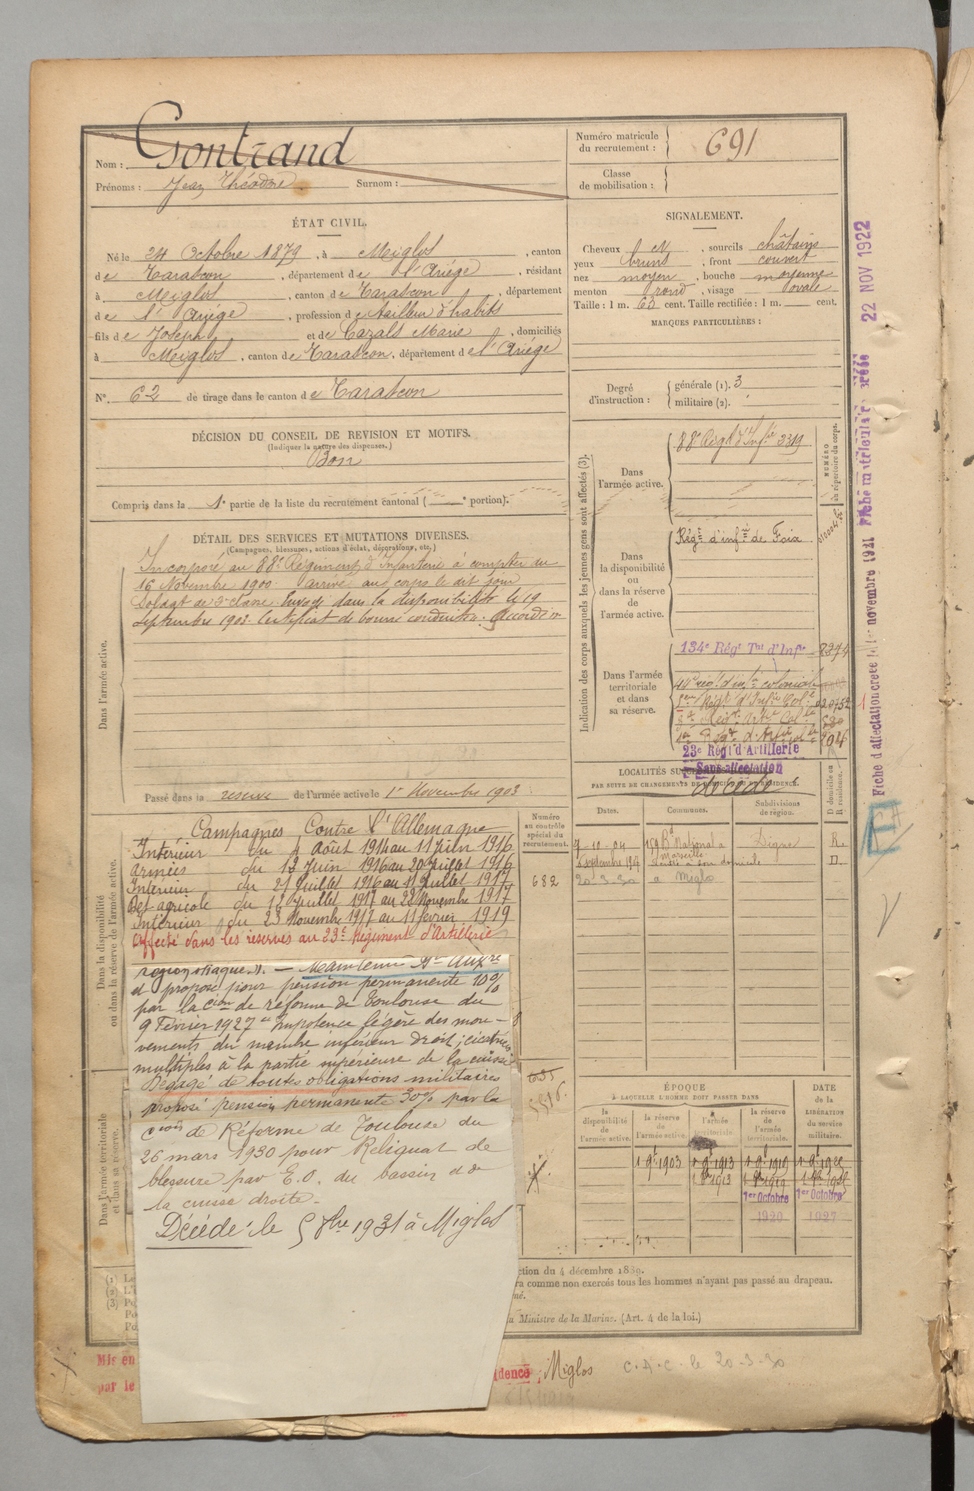 Nom : Gontrand
Prénoms : Jean Théodore. Surnom :
Numéro matricule du recrutement : 691
Classe de mobilisation :
ÉTAT CIVIL.
Né le 24 Octobre 1879, à Meiglos, canton
de Tarascon, département de l'Ariège, résidant
à Meiglos, canton de Tarascon, département
de l'Ariège, profession de tailleur d'habits
fils de Joseph et de Cazals Marie, domiciliés
à Meiglos, canton de Tarascon, département de l'Ariège
N°. 62 de tirage dans le canton de Tarascon
DÉCISION DU CONSEIL DE REVISION ET MOTIFS.
(Indiquer la nature des dispenses.)
Bon
Compris dans la 1e partie de la liste du recrutement cantonal ( e portion).
DÉTAIL DES SERVICES ET MUTATIONS DIVERSES.
(Campagnes, blessures, actions d'éclat, décorations, etc.)
Incorporé au 88e Régiment d'Infanterie à compter du
16 Novembre 1900 arrivé au corps le dit jour
Soldat de 2e classe. Envoyé dans la disponibilité le 19
Septembre 1903. Certificat de bonne conduite. Accordé
Dans l'armée active.
Passé dans la réserve de l'armée active le 1er Novembre 1903
SIGNALEMENT.
Cheveux , sourcils châtains
yeux bruns, front couvert
nez moyen, bouche moyenne
menton rond, visage ovale
Taille : 1 m. 62 cent. Taille rectifiée : 1 m. cent.
MARQUES PARTICULIÈRES :
Degré d'instruction : générale (1). 3
militaire (2).
Indication des corps auxquels les jeunes gens sont affectés (3).
NUMÉRO au répertoire du corps.
Dans l'armée active.
88e Régt d'Infie 2319
Dans la disponibilité ou dans la réserve de l'armée active.
Régt d'infie de Foix
Dans l'armée territoriale et dans sa réserve.
134e Régt Tal d'Infie
23e Régt d'Artillerie
Sans affectation
Décédé
PAR SUITE DE CHANGEMENTS DE DOMICILE OU DE RÉSIDENCE.
Dates. Communes. Subdivisions de région. D domicile ou R résidence.
7-10-04 159 Bd National à Marseille Digne R.
20-3-30 à Miglos
Fiche d'affectation créée le 1er novembre 1921 Fiche matriculaire créée 22 NOV 1922
Dans la disponibilité ou dans la réserve de l'armée active.
Numéro au contrôle spécial du recrutement.
682
Campagnes Contre l'Allemagne
Intérieur du 4 Août 1914 au 11 Juin 1916
Armées du 12 Juin 1916 au 20 Juillet 1916
Intérieur du 21 Juillet 1916 au 11 Juillet 1917
Dét agricole du 12 Juillet 1917 au 22 Novembre 1917
Intérieur du 23 Novembre 1917 au 11 février 1919
Affecté dans les réserves au 23e Régiment d'Artillerie
région iliaque. ). — Maintenu St Auxre
et proposé pour pension permanente 10%
par la Cion de réforme de Toulouse du
9 Février 1927 " Impotence légère des mou-
vements du membre inférieur droit ; cicatrices
multiples à la partie supérieure de la cuisse
Dégagé de toutes obligations militaires
proposé pension permanente 30% par la
Cion de Réforme de Toulouse du
26 mars 1930 pour Reliquat de
blessure par E.O. du bassin et de
la cuisse droite.
Décédé le 5 8bre 1931 à Miglos
Dans l'armée territoriale et dans sa réserve.
ÉPOQUE
À LAQUELLE L'HOMME DOIT PASSER DANS
la disponibilité de l'armée active. la réserve de l'armée active. l'armée territoriale. la réserve de l'armée territoriale.
DATE de la LIBÉRATION du service militaire.
1er Octobre 1920 1er Octobre 1927
ction du 4 décembre 1889.
ra comme non exercés tous les hommes n'ayant pas passé au drapeau.
u Ministre de la Marine. (Art. 4 de la loi.)
Mis en
par le
idence : Miglos
C.A.C. le 20-3-30